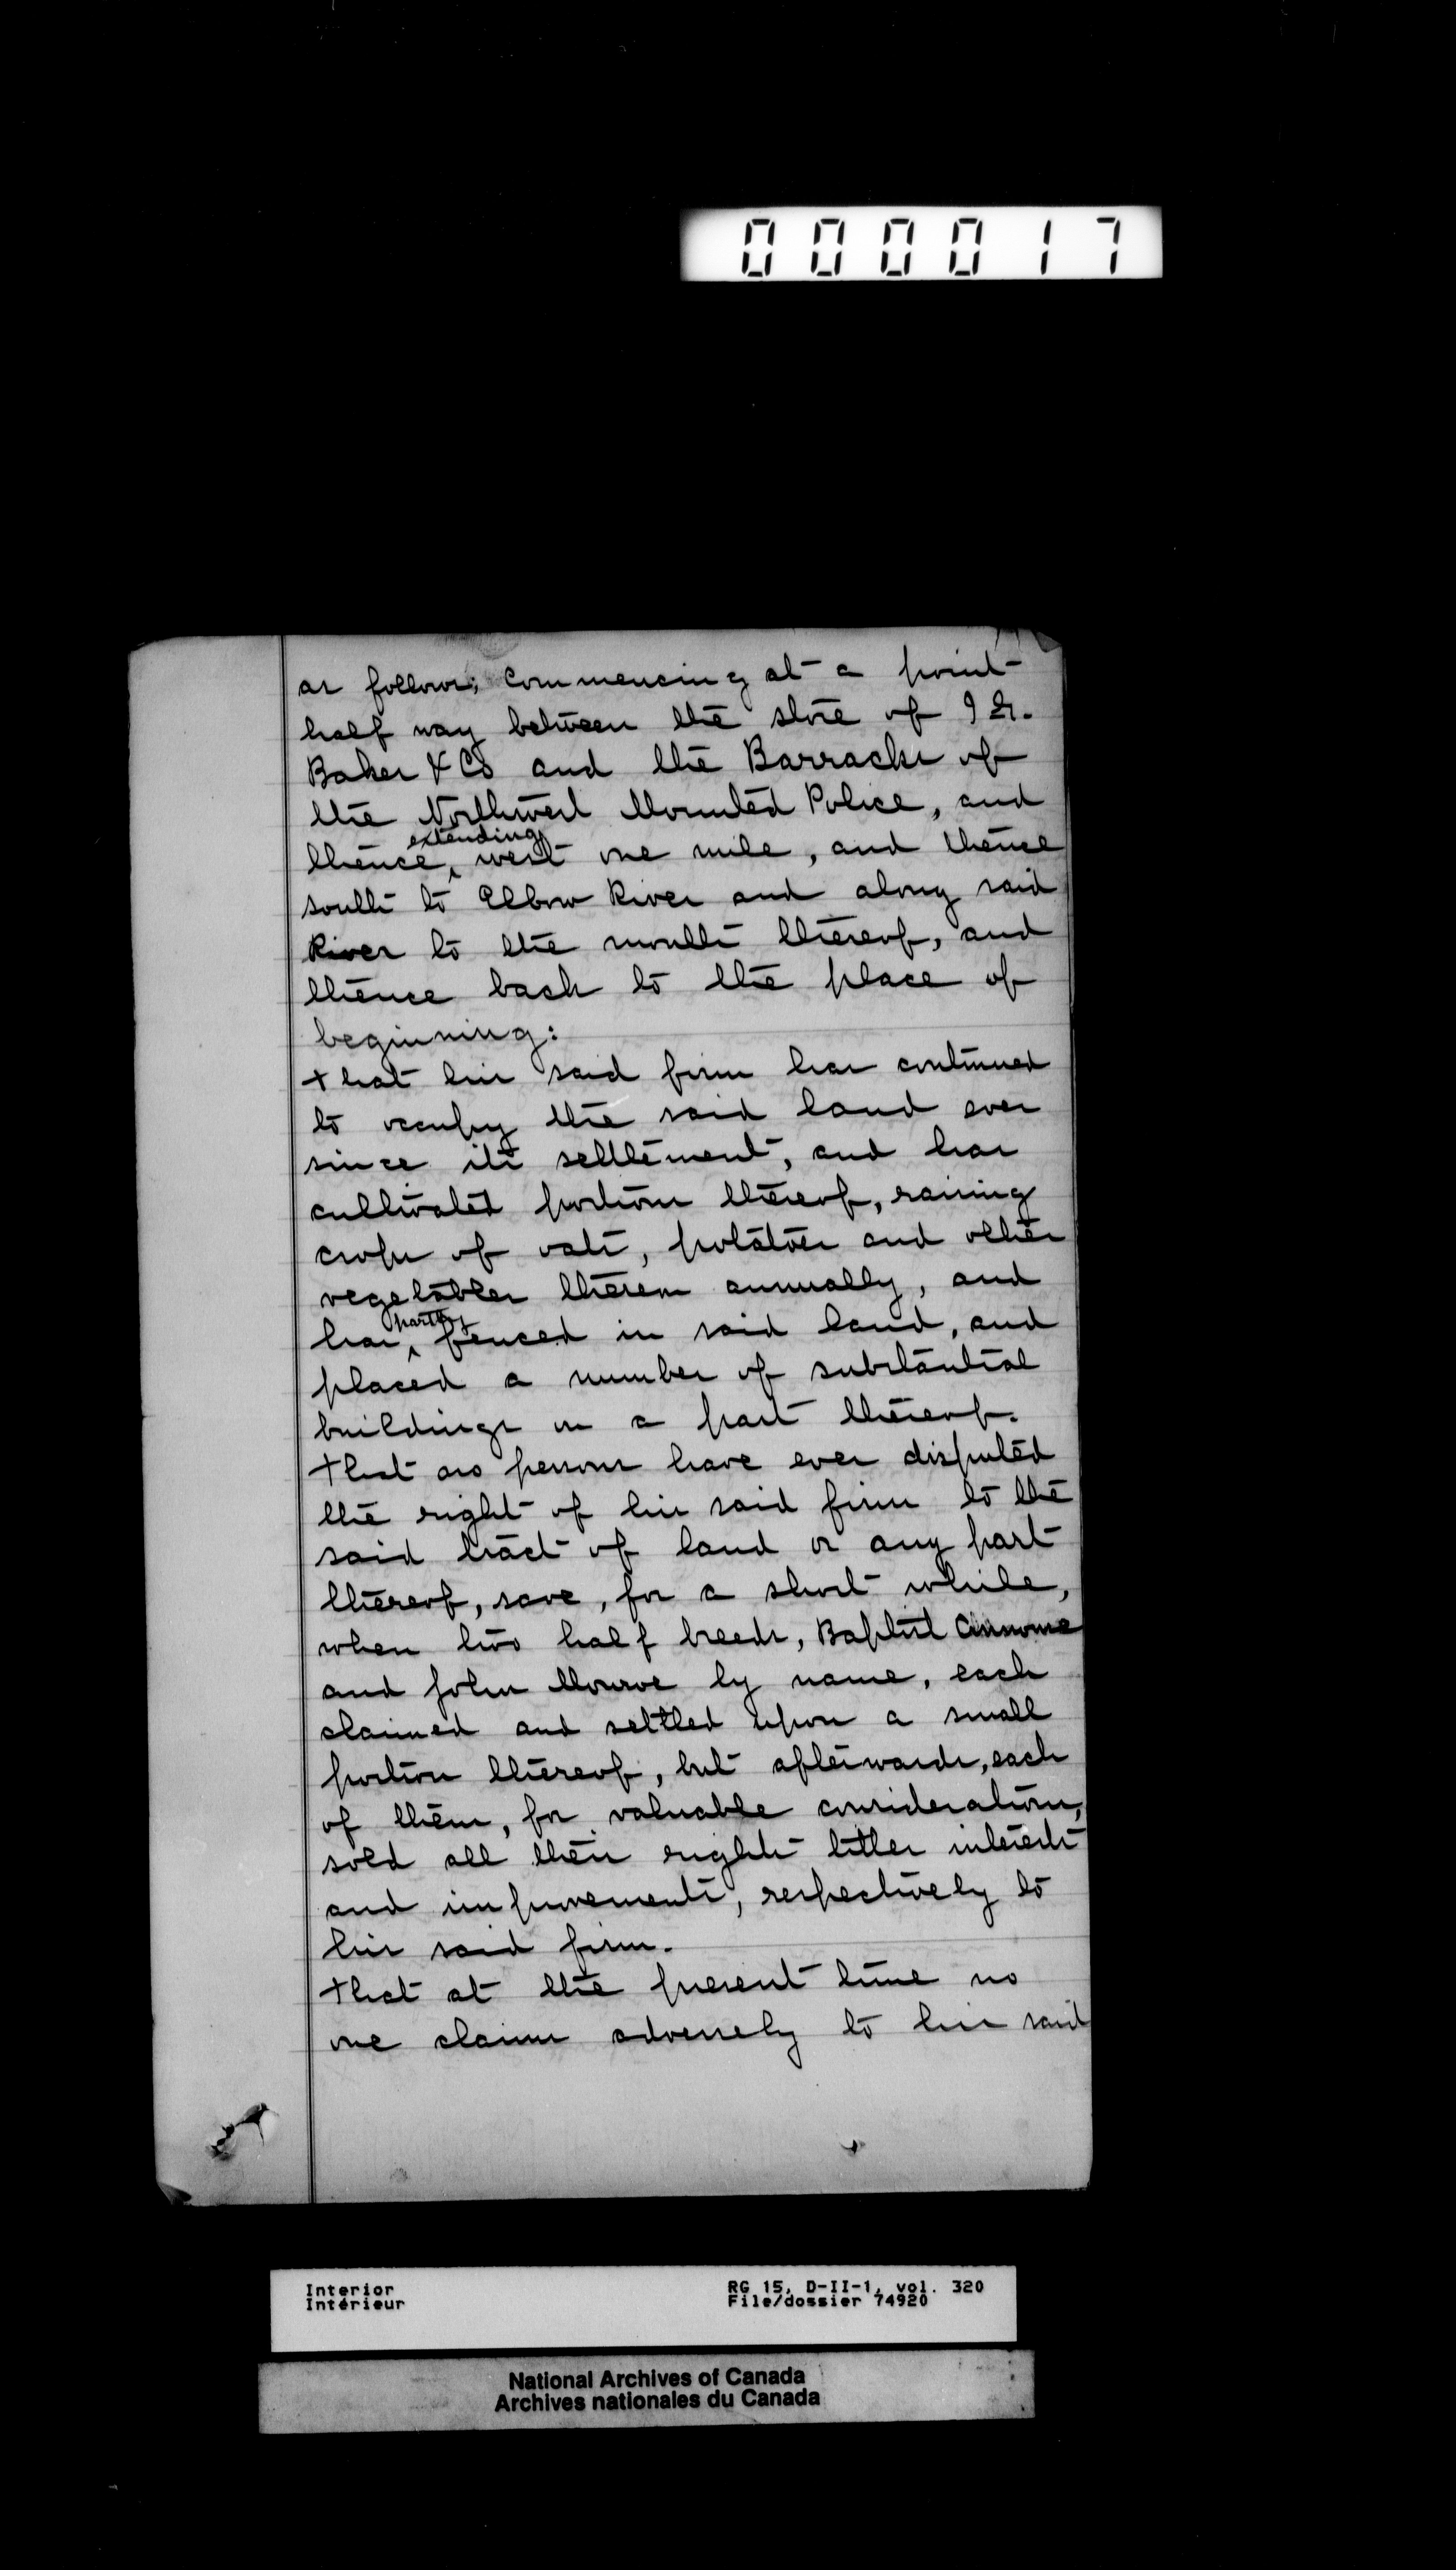 000017
as follows; commencing at a point
half way between the store of I G.
Baker & Co and the Barracks of
the Northwest Mounted Police, and
extending
thence, west one mile, and thence
south to Elbow River and along said
River to the mouth thereof, and
thence back to the place of
beginning:
that his said firm has continued
to occupy the said land ever
since its settlement, and has
cultivated portions thereof, raising
crops of oats, potatoes and other
vegetables thereon annually, and
partly
has fenced in said land, and
placed a number of substantial
buildings on a part thereof.
that no persons have ever disputed
the right of his said firm to the
said tract of land or any part
thereof, save, for a short while,
when two half breeds, Baptist
and John Monroe by name, each
claimed and settled upon a small
portion thereof, but afterwards, each
of them, for valuable consideration,
sold all their rights titles interests
and improvements, respectively to
his said firm.
that at the present time no
one claims adversely to his said
Interior
Intérieur
RG 15, D-II-1, vol. 320
File/dossier 74920
National Archives of Canada
Archives nationales du Canada